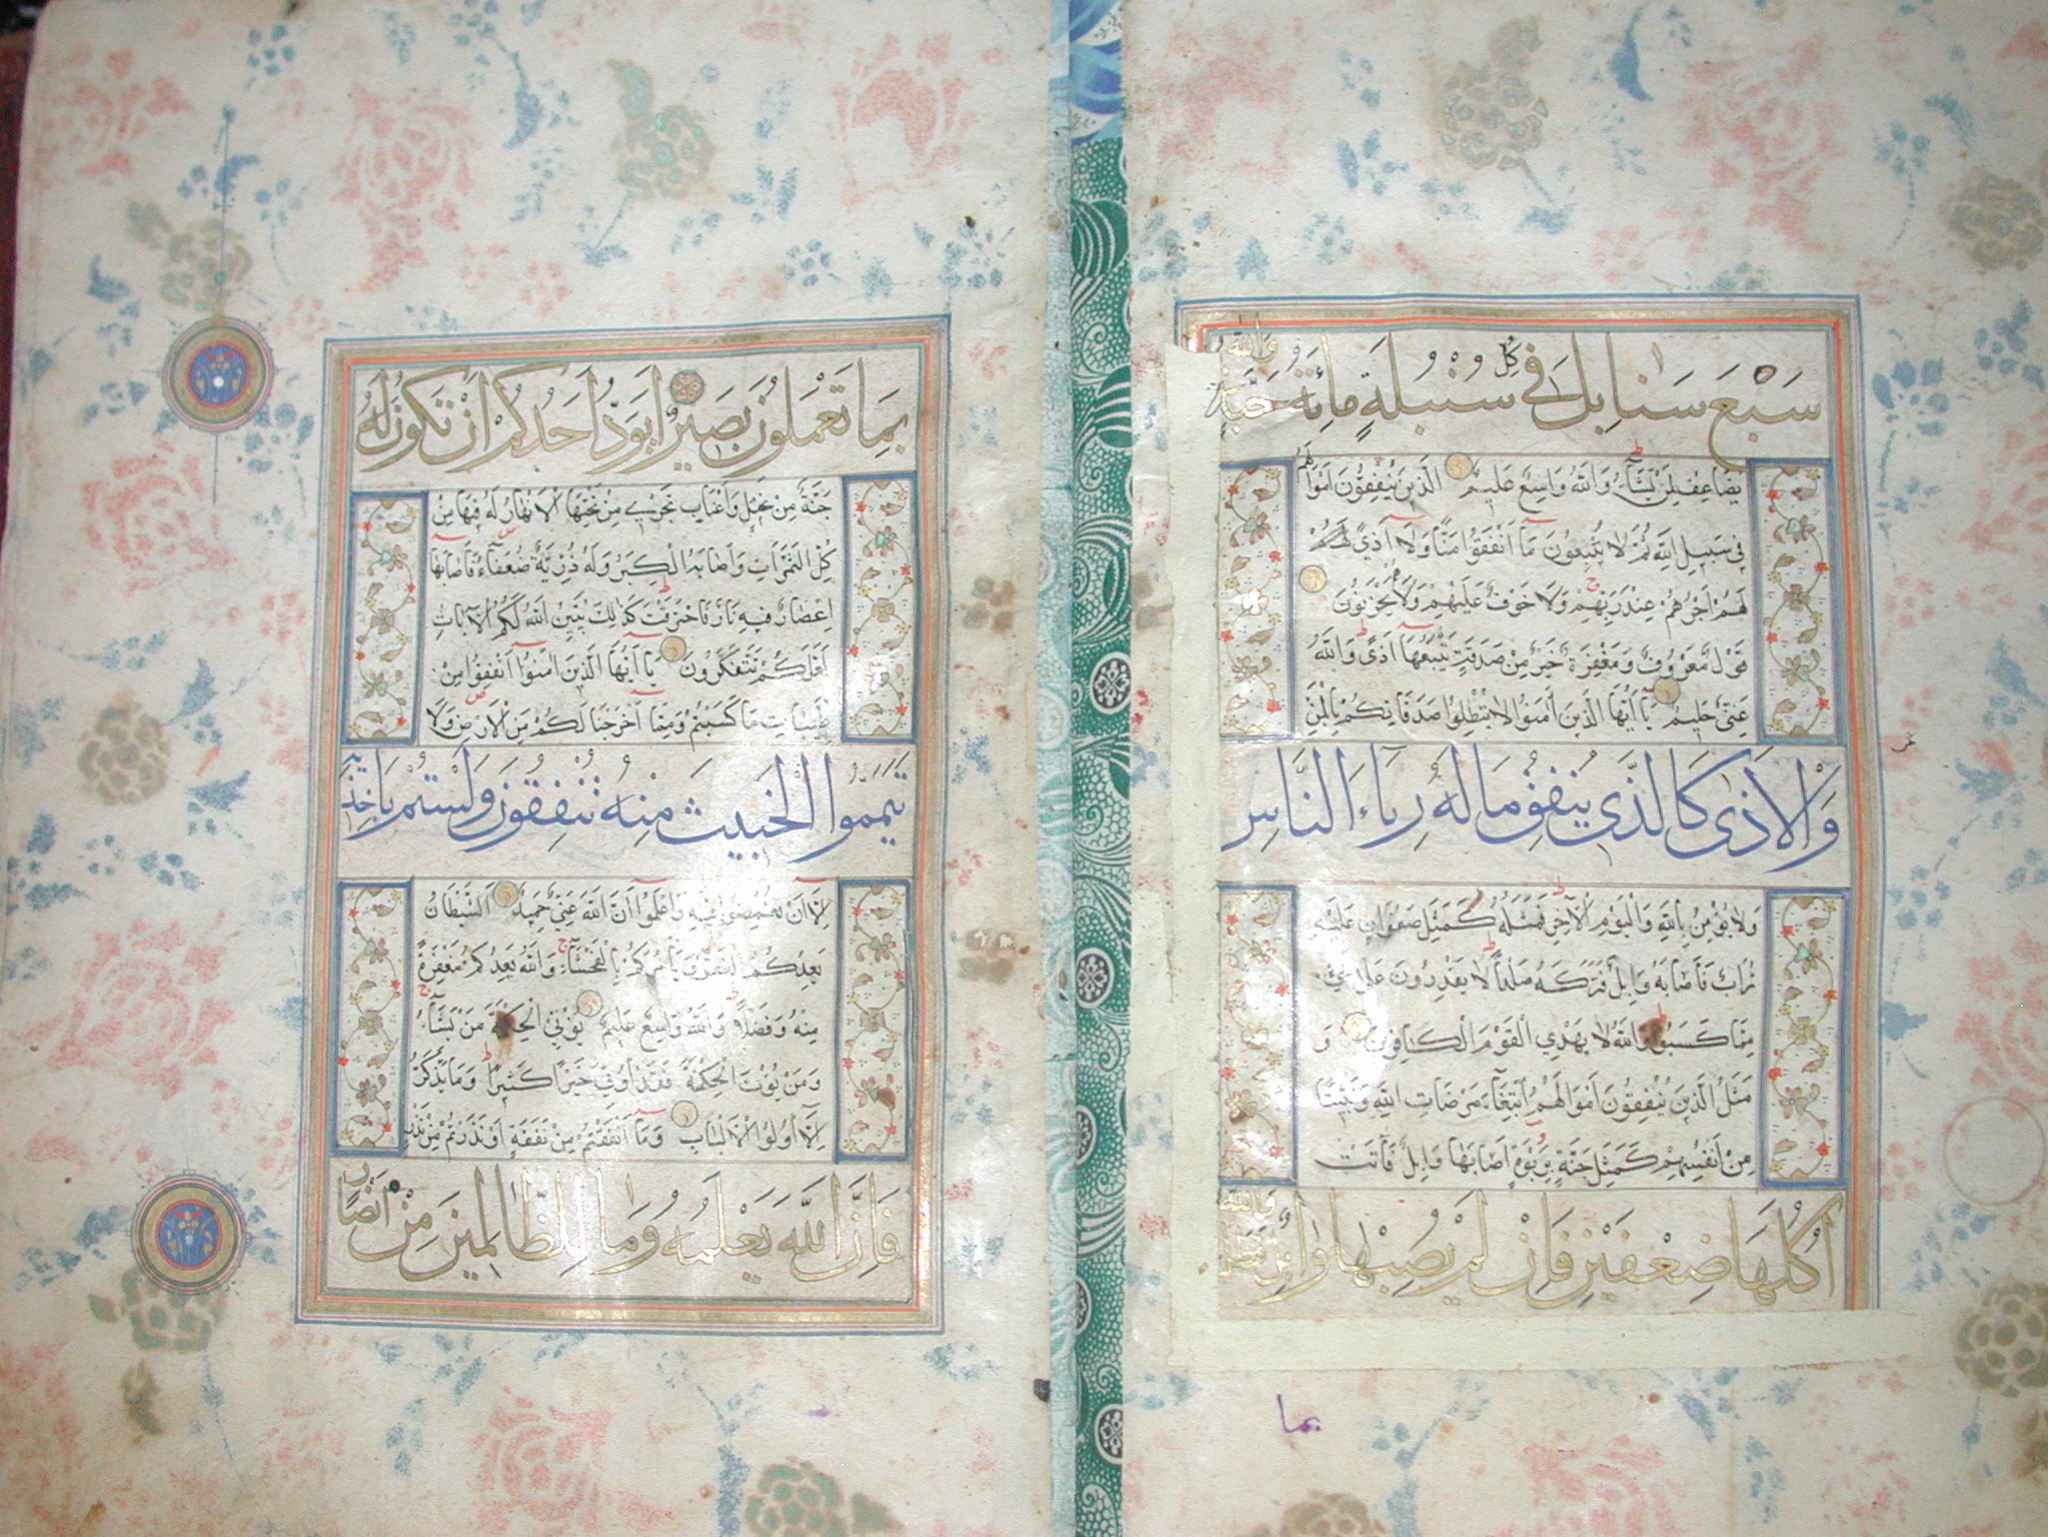 سَبْعَ سَنَابِلَ فِي كُلِّ سُنْبُلَةٍ مِائَةُ حَبَّةٍ وَاللَّهُ
يُضَاعِفُ لِمَنْ يَشَآءُ وَاللَّهُ وَاسِعٌ عَلِيمٌ الَّذِينَ يُنْفِقُونَ أَمْوَالَهُمْ
فِي سَبِيلِ اللَّهِ ثُمَّ لَا يُتْبِعُونَ مَآ أَنْفَقُوا مَنًّا وَلَآ أَذًى
لَهُمْ أَجْرُهُمْ عِنْدَ رَبِّهِمْ وَلَا خَوْفٌ عَلَيْهِمْ وَلَا يَحْزَنُونَ
قَوْلٌ مَعْرُوفٌ وَمَغْفِرَةٌ خَيْرٌ مِنْ صَدَقَةٍ يَتْبَعُهَآ أَذًى وَاللَّهُ
غَنِيٌّ حَلِيمٌ يَآ أَيُّهَا الَّذِينَ آمَنُوا لَا تُبْطِلُوا صَدَقَاتِكُمْ بِالْمَنِّ
وَالْأَذَى كَالَّذِي يُنْفِقُ مَالَهُ رِئَآءَ النَّاسِ
وَلَا يُؤْمِنُ بِاللَّهِ وَالْيَوْمِ الْآخِرِ فَمَثَلُهُ كَمَثَلِ صَفْوَانٍ عَلَيْهِ
تُرَابٌ فَأَصَابَهُ وَابِلٌ فَتَرَكَهُ صَلْدًا لَا يَقْدِرُونَ عَلَى شَيْءٍ
مِمَّا كَسَبُوا وَاللَّهُ لَا يَهْدِي الْقَوْمَ الْكَافِرِينَ وَ
مَثَلُ الَّذِينَ يُنْفِقُونَ أَمْوَالَهُمُ ابْتِغَآءَ مَرْضَاتِ اللَّهِ وَتَثْبِيتًا
مِنْ أَنْفُسِهِمْ كَمَثَلِ جَنَّةٍ بِرَبْوَةٍ أَصَابَهَا وَابِلٌ فَآتَتْ
أُكُلَهَا ضِعْفَيْنِ فَإِنْ لَمْ يُصِبْهَا وَابِلٌ فَطَلٌّ وَاللَّهُ
بما
بِمَا تَعْمَلُونَ بَصِيرٌ أَيَوَدُّ أَحَدُكُمْ أَنْ تَكُونَ لَهُ
جَنَّةٌ مِنْ نَخِيلٍ وَأَعْنَابٍ تَجْرِي مِنْ تَحْتِهَا الْأَنْهَارُ لَهُ فِيهَا مِنْ
كُلِّ الثَّمَرَاتِ وَأَصَابَهُ الْكِبَرُ وَلَهُ ذُرِّيَّةٌ ضُعَفَآءُ فَأَصَابَهَا
إِعْصَارٌ فِيهِ نَارٌ فَاحْتَرَقَتْ كَذَلِكَ يُبَيِّنُ اللَّهُ لَكُمُ الْآيَاتِ
لَعَلَّكُمْ تَتَفَكَّرُونَ يَآ أَيُّهَا الَّذِينَ آمَنُوا أَنْفِقُوا مِنْ
طَيِّبَاتِ مَا كَسَبْتُمْ وَمِمَّآ أَخْرَجْنَا لَكُمْ مِنَ الْأَرْضِ وَلَا
تَيَمَّمُوا الْخَبِيثَ مِنْهُ تُنْفِقُونَ وَلَسْتُمْ بِآخِذِيهِ
إِلَّآ أَنْ تُغْمِضُوا فِيهِ وَاعْلَمُوا أَنَّ اللَّهَ غَنِيٌّ حَمِيدٌ الشَّيْطَانُ
يَعِدُكُمُ الْفَقْرَ وَيَأْمُرُكُمْ بِالْفَحْشَآءِ وَاللَّهُ يَعِدُكُمْ مَغْفِرَةً
مِنْهُ وَفَضْلًا وَاللَّهُ وَاسِعٌ عَلِيمٌ يُؤْتِي الْحِكْمَةَ مَنْ يَشَآءُ
وَمَنْ يُؤْتَ الْحِكْمَةَ فَقَدْ أُوتِيَ خَيْرًا كَثِيرًا وَمَا يَذَّكَّرُ
إِلَّآ أُولُوا الْأَلْبَابِ وَمَآ أَنْفَقْتُمْ مِنْ نَفَقَةٍ أَوْ نَذَرْتُمْ مِنْ نَذْرٍ
فَإِنَّ اللَّهَ يَعْلَمُهُ وَمَا لِلظَّالِمِينَ مِنْ أَنْصَارٍ